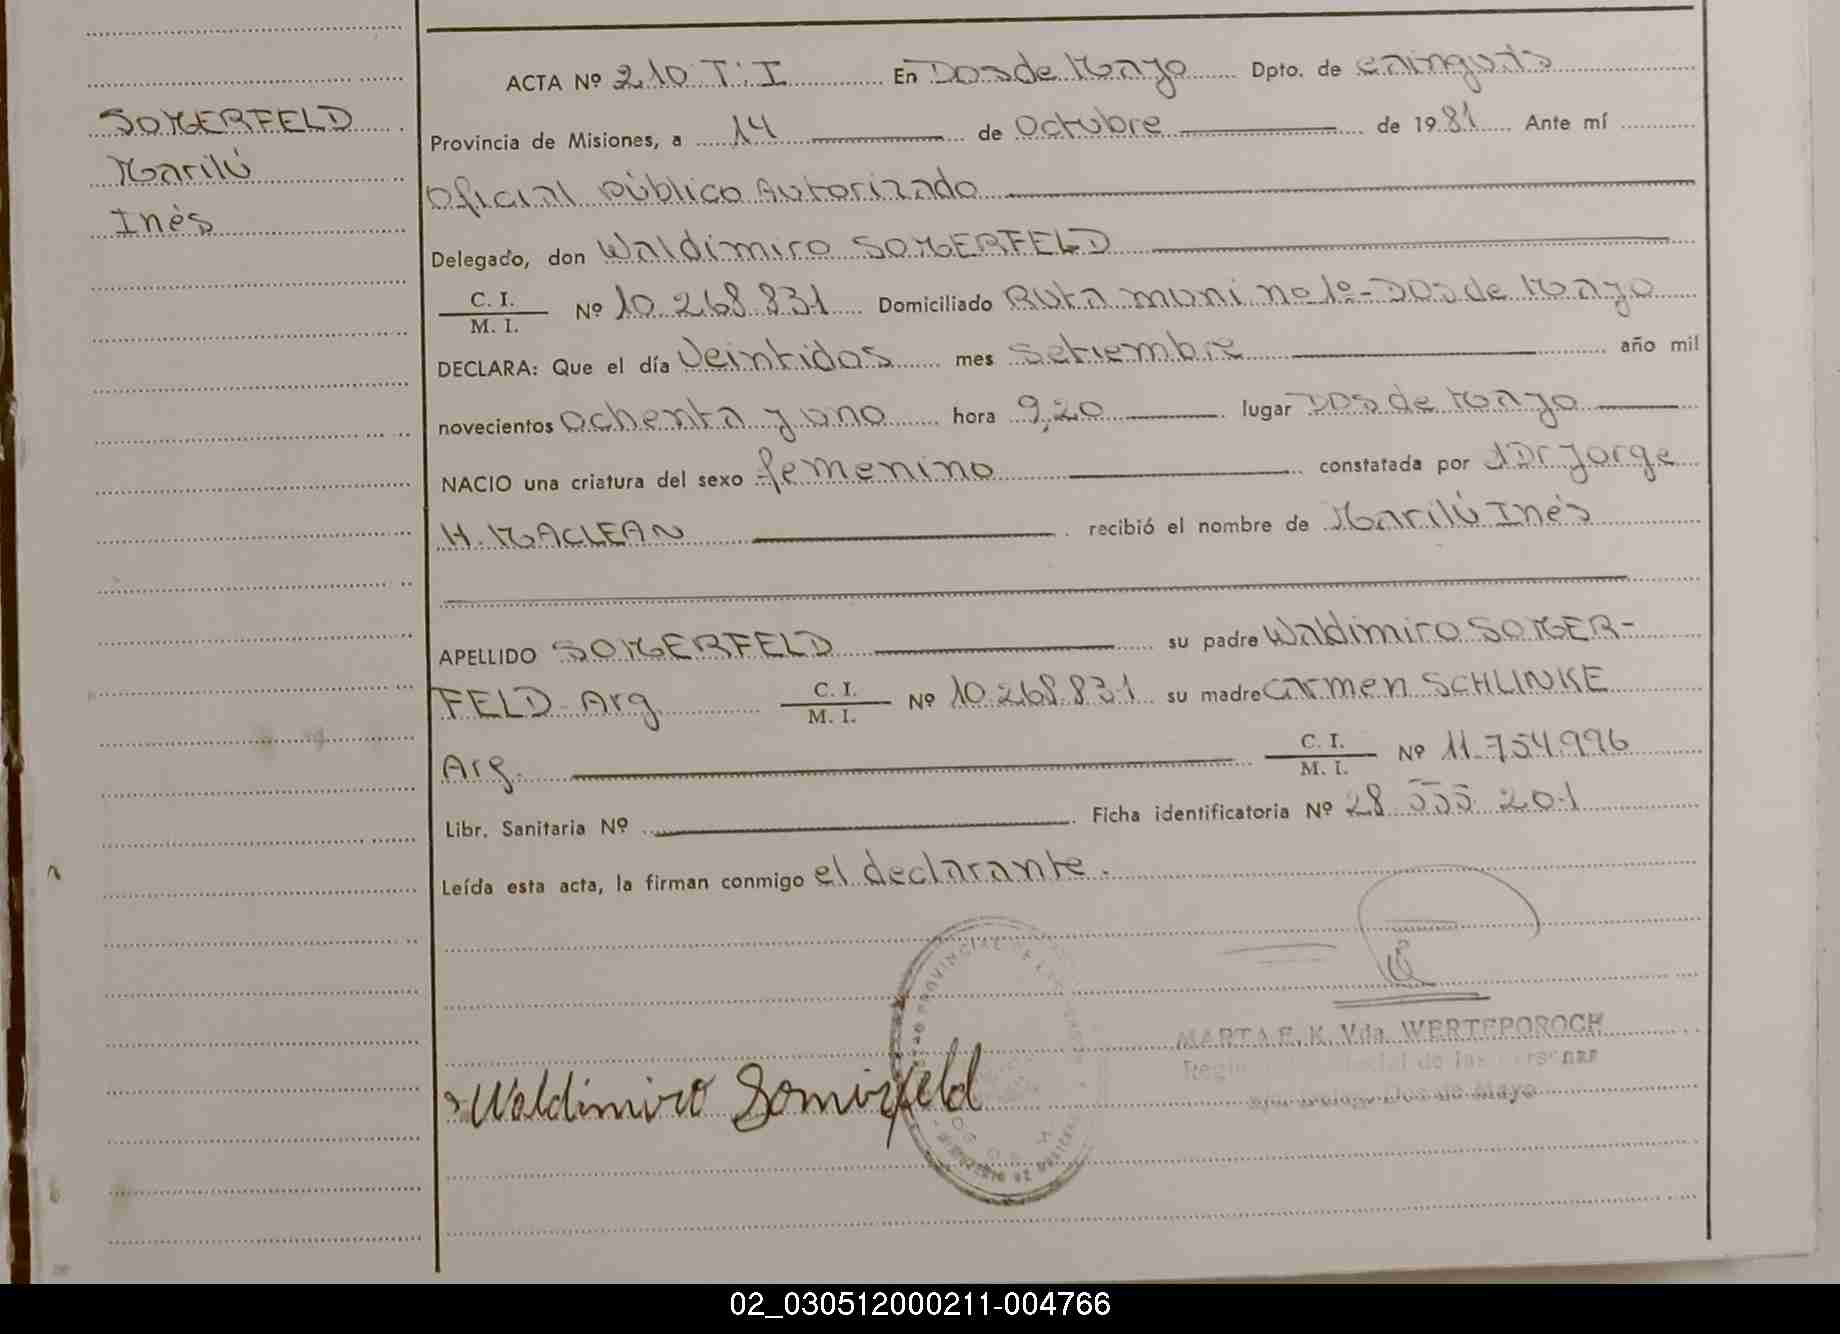 SOMERFELD
Marilú
Inés
ACTA Nº 210 T: I En Dos de Mayo Dpto. de Cainguás
Provincia de Misiones, a 14 de Octubre de 1981 Ante mí
Oficial Público Autorizado
Delegado, don Waldimiro SOMERFELD
C. I.
M. I. Nº 10.268.831 Domiciliado Ruta muni nº 1º - Dos de Mayo
DECLARA: Que el día Veintidos mes setiembre año mil
novecientos ochenta y uno hora 9,20 lugar Dos de Mayo
NACIO una criatura del sexo femenino constatada por Dr Jorge
H. MACLEAN recibió el nombre de Marilú Inés
APELLIDO SOMERFELD su padre Waldimiro SOMER-
FELD - Arg. C. I.
M. I. Nº 10.268.831 su madre Carmen SCHLINKE
Arg. C. I.
M. I. Nº 11.754.996
Libr. Sanitaria Nº Ficha identificatoria Nº 28.555.201
Leída esta acta, la firman conmigo el declarante.
Waldimiro Somerfeld
MARTA E. K. Vda. WERTEPOROCH
de las
Dos de Mayo
02_030512000211-004766